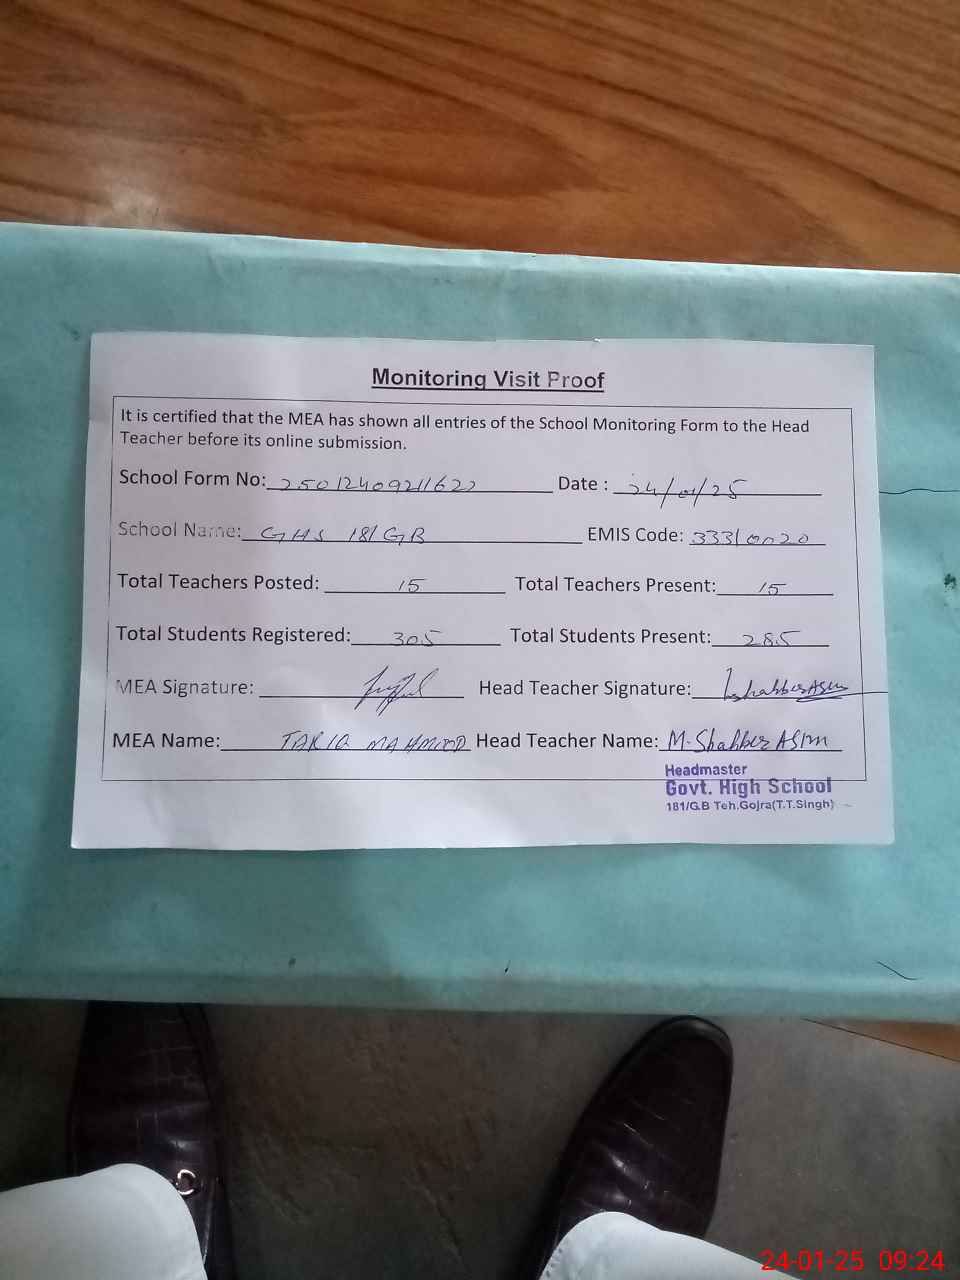 Monitoring Visit Proof
It is certified that the MEA has shown all entries of the School Monitoring Form to the Head
Teacher before its online submission.
School Form No: 25012409211622 Date : 24/01/25
School Name: GHS 181 GB EMIS Code: 33310020
Total Teachers Posted: 15 Total Teachers Present: 15
Total Students Registered: 305 Total Students Present: 285
MEA Signature: Head Teacher Signature:
MEA Name: TARIQ MAHMOOD Head Teacher Name: M. Shahbez ASIM
Headmaster
Govt. High School
181/G.B Teh.Gojra(T.T.Singh)
24-01-25 09:24